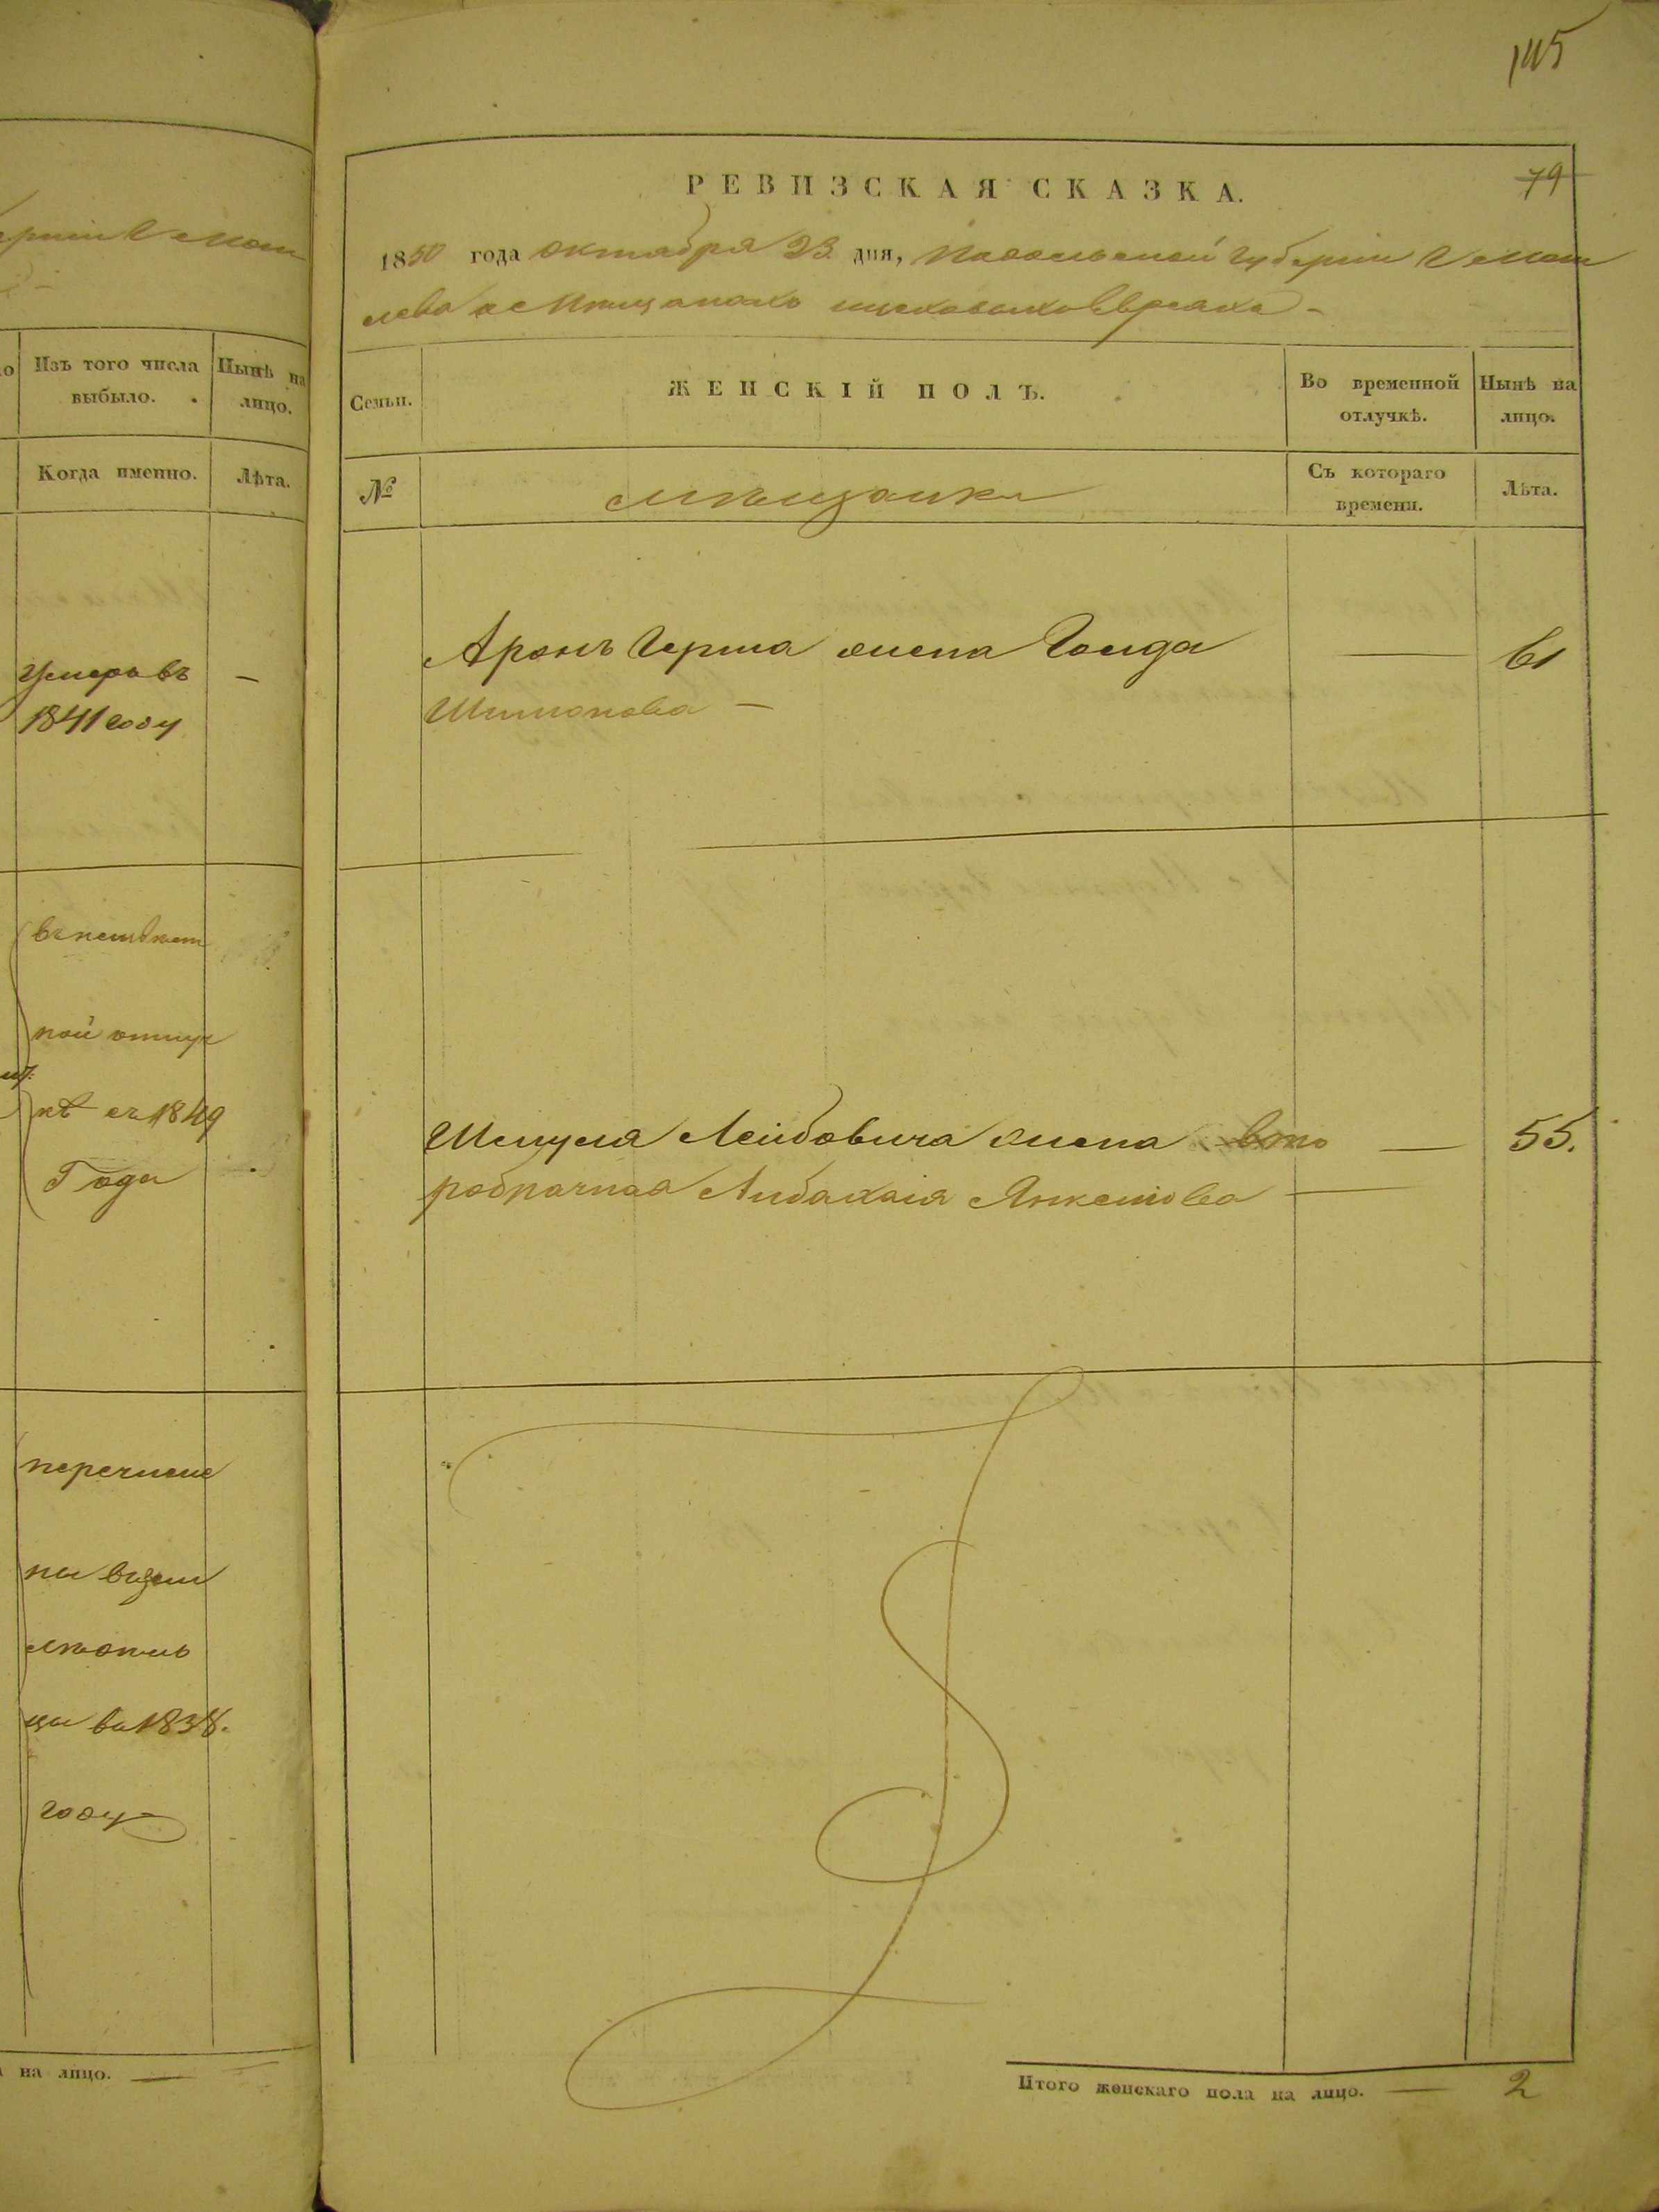 145
79
РЕВИЗСКАЯ СКАЗКА.
1850 года октября 23 дня, Подольской губернии
Изъ того числа
выбыло.
Нынѣ на
лицо.
Когда именно.
Лѣта.
умеръ въ
1841 году
—
ной отлуч
кѣ съ 1849
Года
перечисле
ны въ
цы въ 1838.
году
на лицо. —
Семьи.
ЖЕНСКІЙ ПОЛЪ.
Во временной
отлучкѣ.
Нынѣ на
лицо.
№
мѣщанки
Съ котораго
времени.
Лѣта.
Аронъ Герша жена Голда — 61
Шимонова —
Шмуля Лейбовича жена вто — 55.
робрачная Либахая Янкелiова —
Итого женскаго пола на лицо. — 2